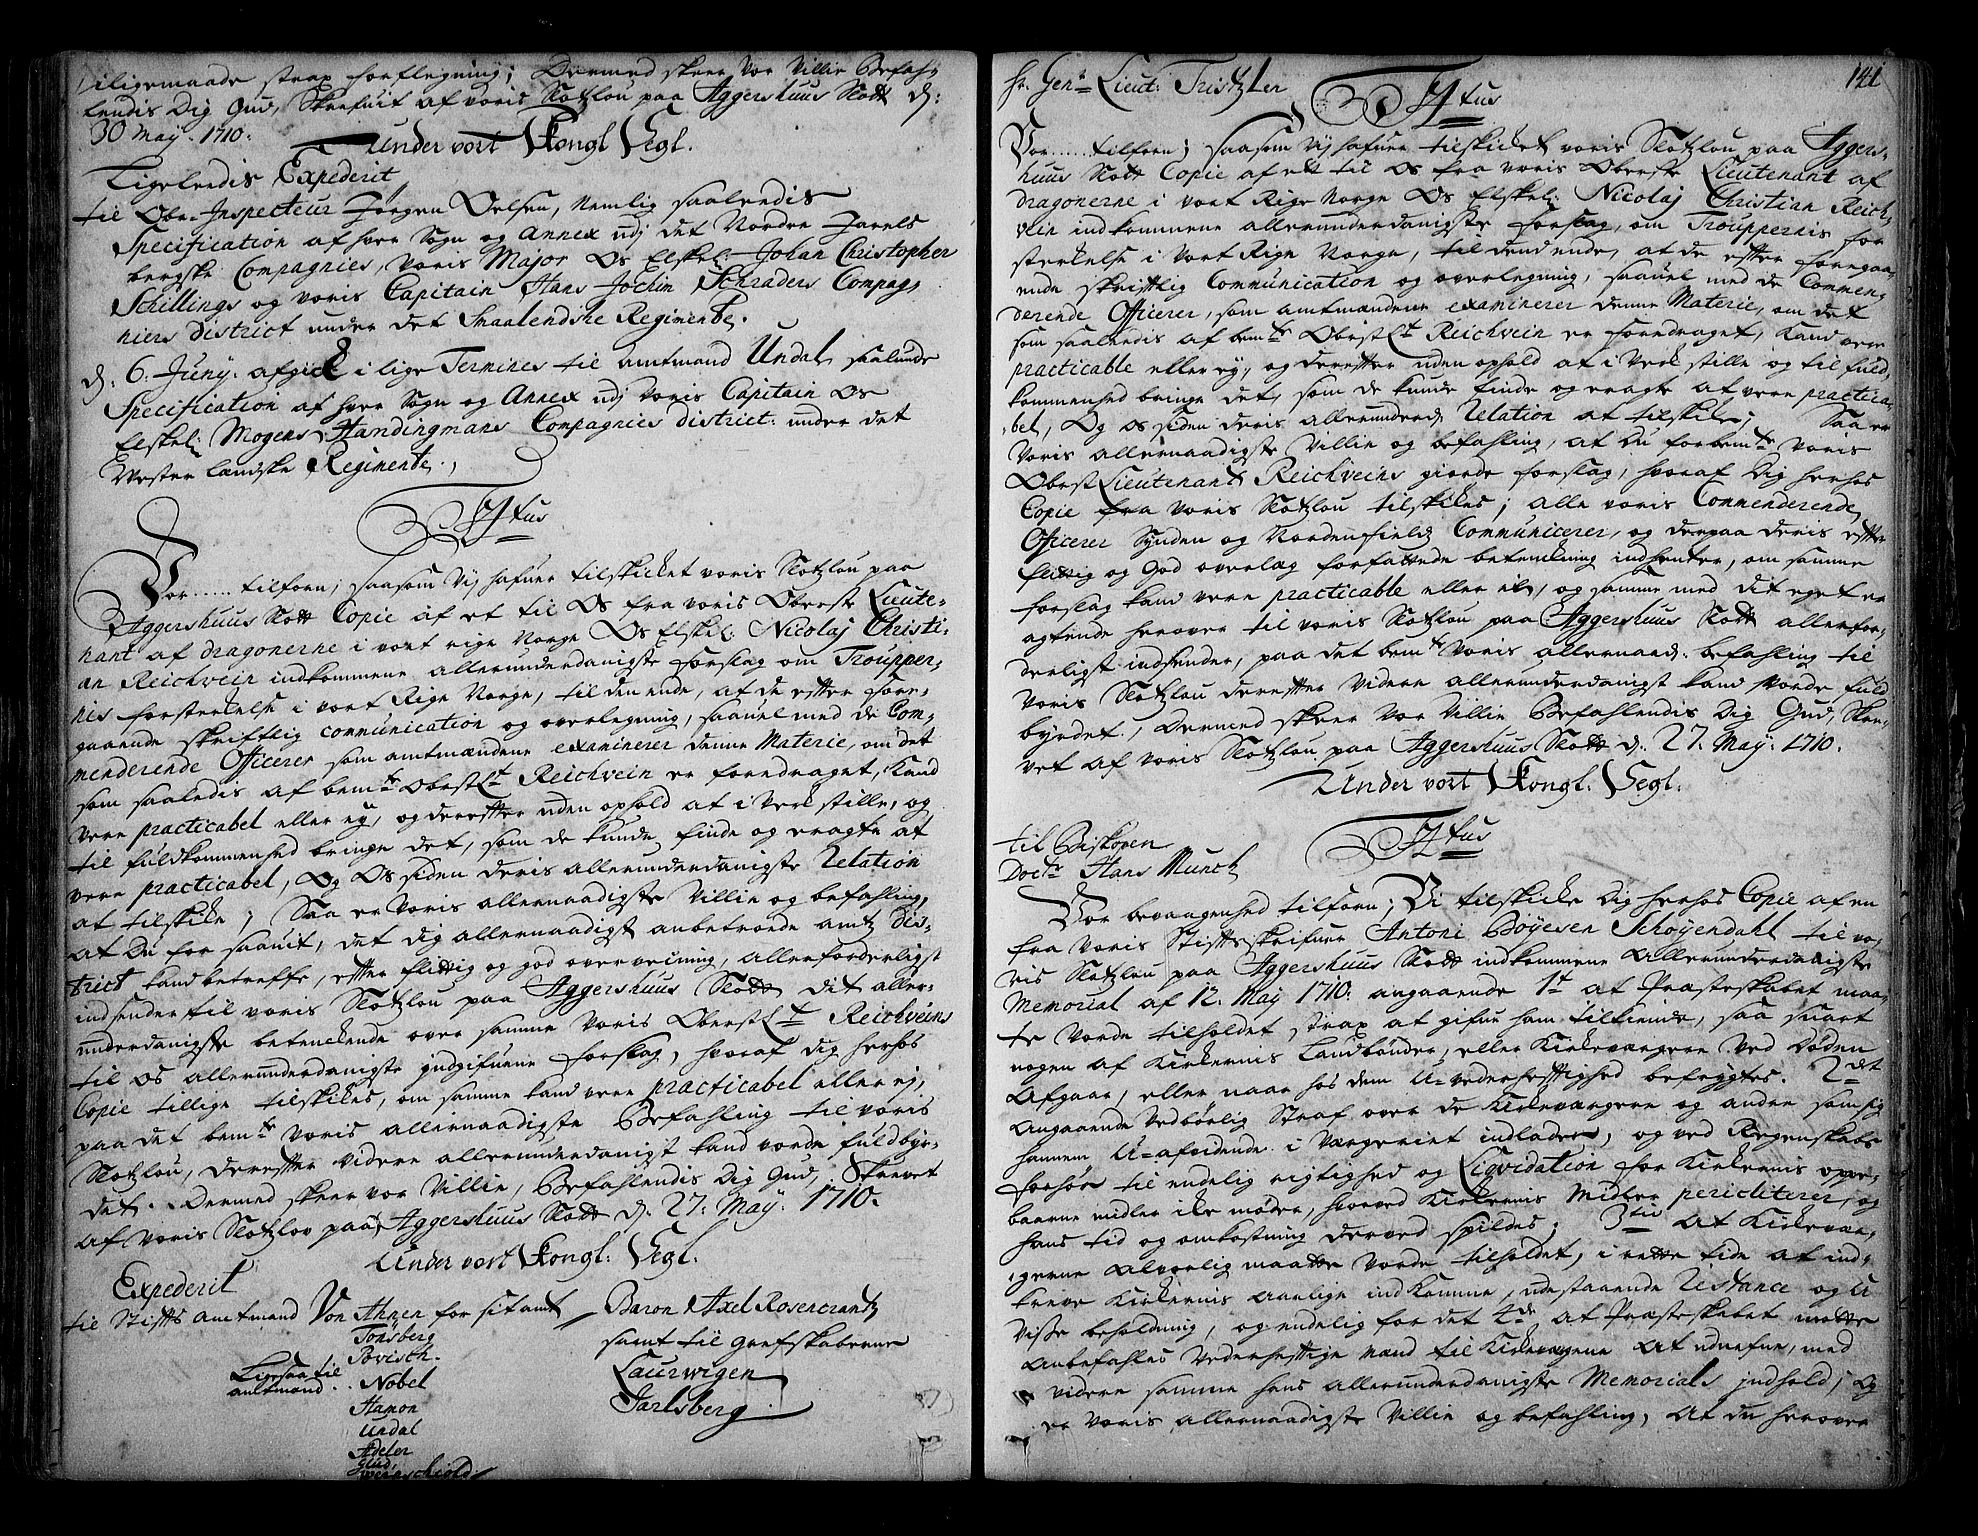 Liligemaade strax forflegning; Dermed skeer Vor Villie Befah-
lendis Dig Gud, Skrefuit af voris Slotzlou paa Aggershuus Slott d:
30 May. 1710.
Under vort Kongl Segl.
Ligeledis Expederit
til Obr-Inspecteur Jørgen Oelsen, Nemlig saaledis
Specification af hver Sogn og Annex udj det Nordre Jarels
bergske Compagnies, Voris Major Os Elskel: Johan Christopher
Schillings og voris Capitain Hans Jochim Schraders Compag-
niers District under det Smaalendske Regimente.
d: 6. Juny. afgick i lige Termines til amtmand Undal saalunde
Specification af hver Sogn og Annex udj Voris Capitain Os
Elskel: Mogens Handingmans Compagnies district: under det
Vesterlandske Regimente.
Titus
Vor ..... tilforn; saasom Vij hafuer tilskicket voris Slotzlou paa
Aggershuus Slott Copie af et til Os fra voris Oberste Lieute-
nant af dragonerne i vort rige Norge Os Elskel: Nicolaj Christi-
an Reichvein indkommene allerunderdanigste forslag om Troupper-
nis forsterckelse i vort Rige Norge, til den ende, at de efter fore-
gaaende skriftlig communication og overlegning, saauel med de Com-
menderende Officerer som amtmændene examinerer denne Materie, om det
som saaledis af bemte Oberst Lt Reichvein er foredraget, kand
vere practicabel eller ey, og derefter uden ophold at i Verk stille, og
til fuldkommenhed bringe det, som de kunde finde og eragte at
vere practicabel, Og Os siden deris allerunderdanigste Relation
at tilskicke; Saa er Voris allernaadigste Villie og befahling,
at Du for saauit, det dig allernaadigst anbetroede amtz Dis-
trict kand betreffe, efter flittig og god overveining, allerforderligst
indsender til voris Slotzlou paa Aggershuus Slott dit aller-
underdanigste betenckende over samme Voris Oberst Lt Reichveins
til os allerunderdanigste jndgifuene forslag, hvoraf dig herhos
Copie tillige tilskickes, om samme kand vere practicabel eller ej,
paa det bemte Voris allernaadigste Befahling til voris
Slotzlou, derefter videre allerunderdanigst kand vorde fuldbyr-
det. Dermed skeer vor Villie, Befahlendis Dig Gud, Skrevet
af Voris Slotzlov paa Aggershuus Slott d. 27. May. 1710.
Under vort Kongl: Segl.
Expederit
til Stifts amtmand Von Ahnen for sit amt
Tonsberg
Povisch.
Ligesaa til
amtmand. . Nobel
Hamon
Undal
Adeler
Glud,
Werenschiold
Baron Axel Rosencrantz
samt til Grefskaberne
Laurwigen
Jarlsberg.
141
hr. Genl Lieut: Tristzler
Titus
Vor ..... tilforn; saasom Vij hafuer tilskicket voris Slotzlou paa Aggers-
huus Slott Copie af et til Os fra voris Oberste Lieutenant af
dragonerne i vort Rige Norge Os Elskel: Nicolaj Christian Reich-
vein indkommene allerunderdanigste forslag, om Trouppernis for
sterkelse i Vort Rige Norge, til dend ende, at de efter foregaa-
ende skriftlig Communication og overlegning, saauel med de Commen-
derende Officerer, som amtmændene examinerer denne Materie, om det
som saaledis af bemte Oberst Lt Reichvein er foredraget, kand vere
practicable eller ey, og derefter uden ophold at i Verk stille og til fuld-
kommenhed bringe det, som de kunde finde og eragte at vere practica-
bel, Og os siden deris allerunderd. Relation at tilskicke; Saa er
Voris allernaadigste Villie og befahling, at Du forbemte Voris
Oberst Lieutenant Reichveins giorde forslag, hvoraf Dig herhos
Copie fra voris Slotzlou tilskickes; alle voris Commenderende
Officerer Synden og Nordenfields Communicerer, og derpaa deris efter
flittig og God overlæg forfattede betenckning indhenter, om samme
forslag kand vere practicable eller icke, og samme med dit eget er
agtende herover til voris Slotzlou paa Aggershuus Slott allerfor-
derligst indsender, paa det bemte Voris allernaad. befahling til
Voris Slotzlou derefter Videre allerunderdanigst kand vorde fuld
byrdet, Dermed skeer Vor Villie Befahlendis Dig Gud, Skre-
vet af voris Slotzlou paa Aggershuus Slott d. 27. May. 1710.
Under vort Kongl. Segl.
Titus
til Biskopen
Doctr Hans Munch
Vor bevaagenhed tilforn; Vi tilskicke Dig herhos Copie af en
fra voris Stiftsskrifuer Antoni Bøyesen Schøyendahl til vo-
ris Slotzlou paa Aggershuus Slott indkommene Allerunderdanigste
Memorial af 12. May 1710. angaaende 1t at Præsteskabet maa-
te Vorde tilholdet, strax at gifue ham tilkiende, saa snart
nogen af Kirkernis Landbønder, eller Kirkevergere ved Døden
Afgaar, eller naar hos dem U-vederheftighed befrygtes. 2det
Angaaende Vedbørlig Straf over de Kirkevergere og andre som sig
hannem U-afvidende i Vergeriet indlader, og ved Regenskabs
forhør til endelig rigtighed og Liqvidation for Kirkernis oppe-
baarne midler icke møder, hvorved Kirkernis Midler pericliterer, og
hans tid og omkostning derved spildes; 3tie At Kirkever-
gerne Alvorlig maatte Vorde tilholdet, i rette tide at ind-
kreve Kirkernis Aarlige indkomme, udestaaende Restance og U
visse beholdning, og endelig for det 4de at Præsteskabet motte
Anbefahles Vederheftige mænd til Kirkevergene At udnefne, med
videre samme hans allerunderdanigste Memorials jndhold; Og
er Voris allernaadigste Villie og befahling, At du herover